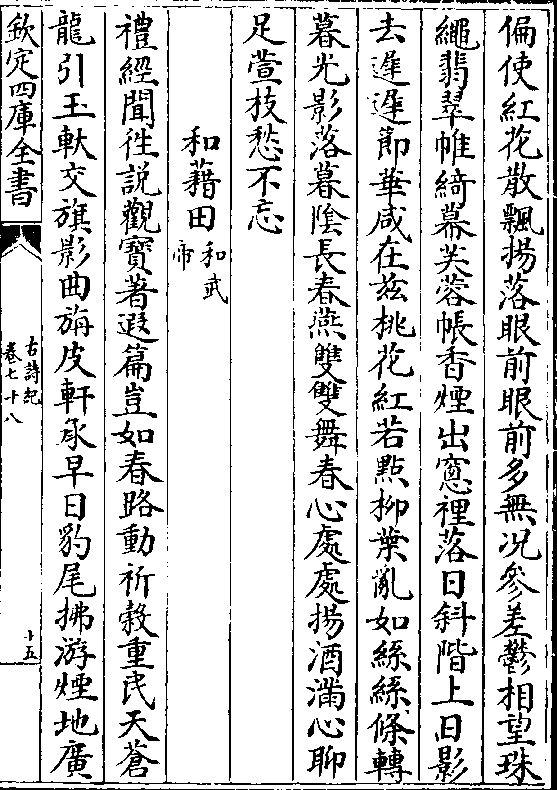 偏使紅花散飄揚落眼前眼前多無况參差鬱相望珠
繩翡翠帷綺幕芙蓉帳香煙出窻裡落日斜階上日影
去遲遲節華咸在兹桃花紅若點柳葉亂如絲絲條轉
暮光影落暮陰長春燕雙雙舞春心處處揚酒滿心聊
足萱枝愁不忘
和藉田和武帝
禮經聞徃說觀寶著遐篇豈如春路動祈穀重民天蒼
龍引玉軑交旗影曲旃皮軒承早日豹尾拂游煙地廣
欽定四庫全書
古詩紀
卷七十八
十五